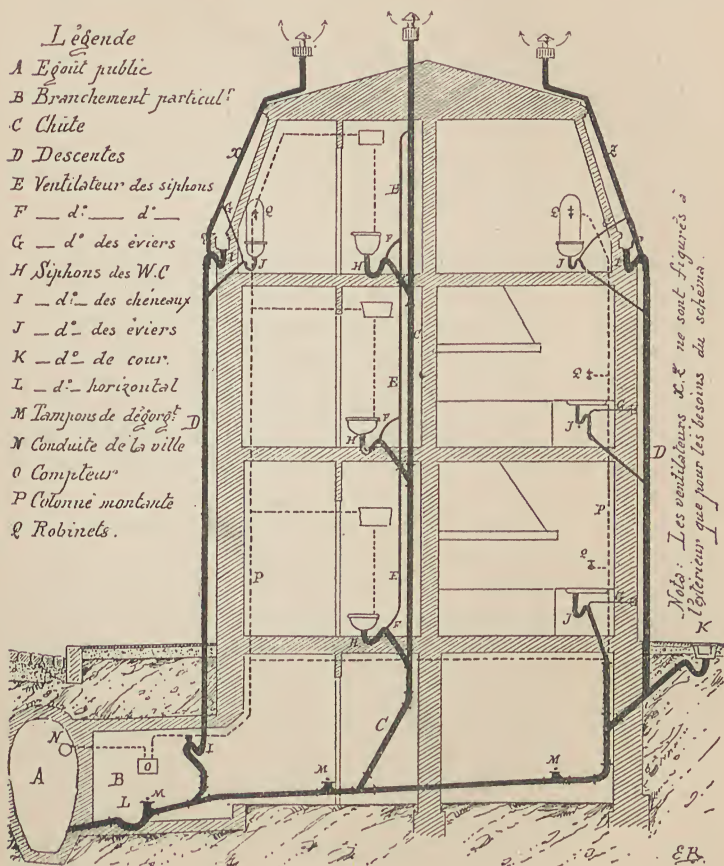 Légende
A Egoût public
B Branchement particul.r
C Chûte
D Descentes
E Ventilateur des siphons
F _ d:º _ d:º _
G _ dº des éviers
H Siphons des W.C
I _ dº _ des chéneaux
J _ dº _ des éviers
K _ dº _ de cour.
L _ dº _ horizontal
M Tampons de dégorg.t
N Conduite de la ville
O Compteur
P Colonne montante
Q Robinets.
Nota: Les ventilateurs x.Z ne sont figurés à
l'extérieur que pour les besoins du schéma.
X
Z
B
G
Q
Q
F
I
J
H
J
I
C
E
Q
F
G
H
J
D
D
P
P
Q
E
G
F
J
H
K
N
I
C
O
A
B
M
M
L
M
EB.